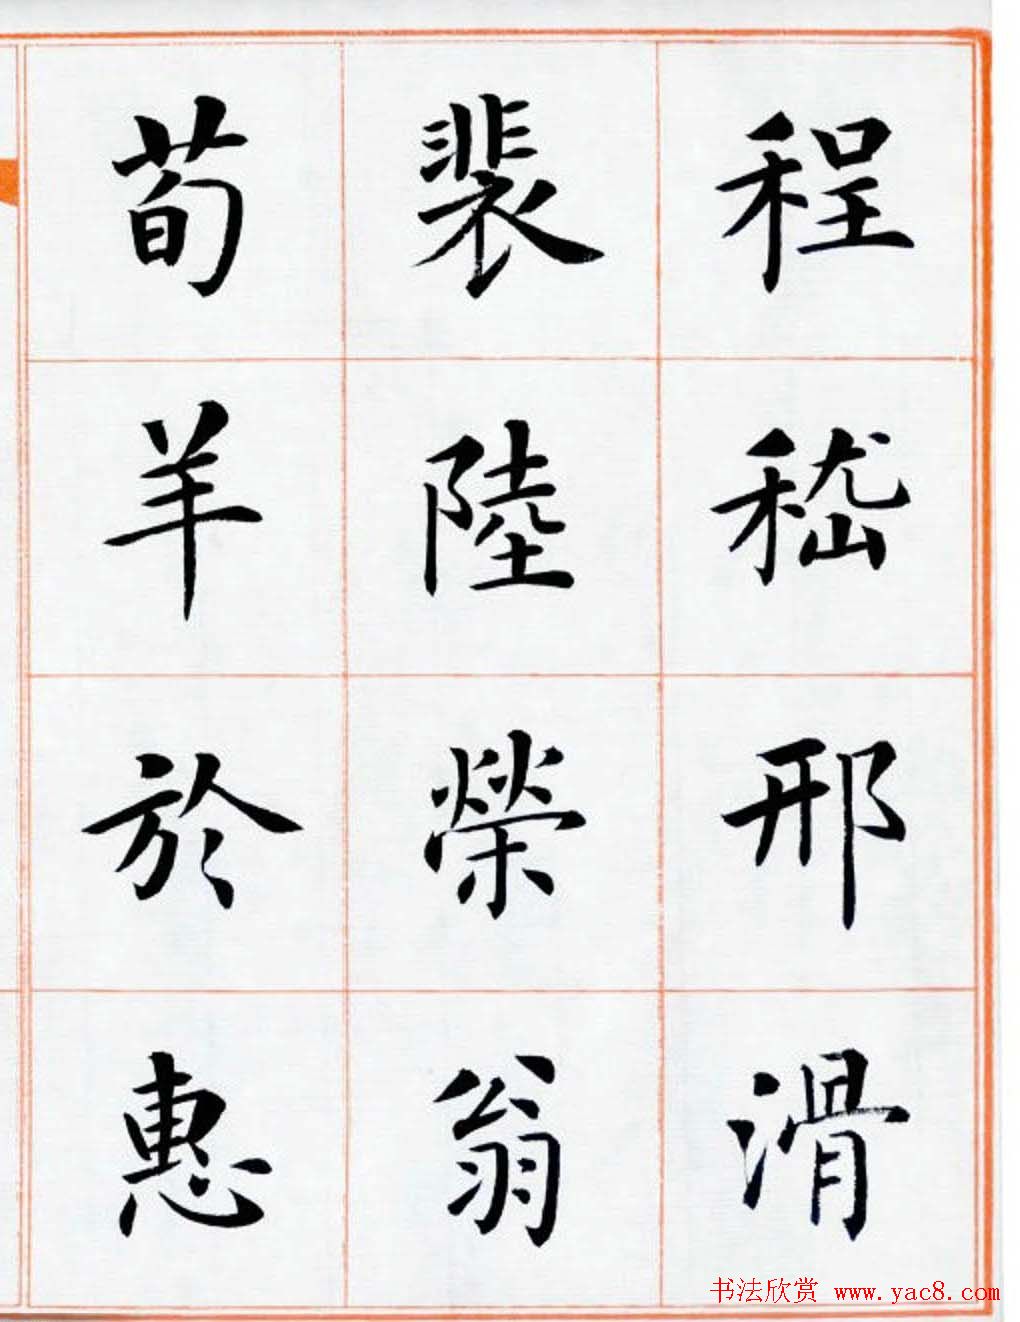 程嵇邢滑
裴陸榮翁
荀羊於惠
书法欣赏 www.yac8.com